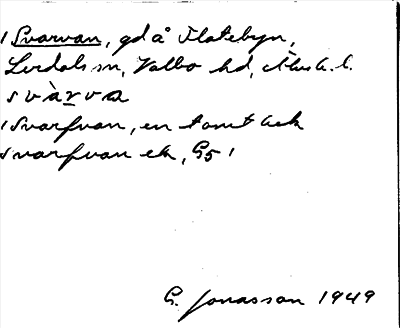 1 Svarvan, gd å Slatebyn,
Lerdals sn, Valbo hd, Älvsb. l.
svàrva
1 Svarfvan, en tomt och
svarfvan ek, G5 1
G. Jonasson 1949